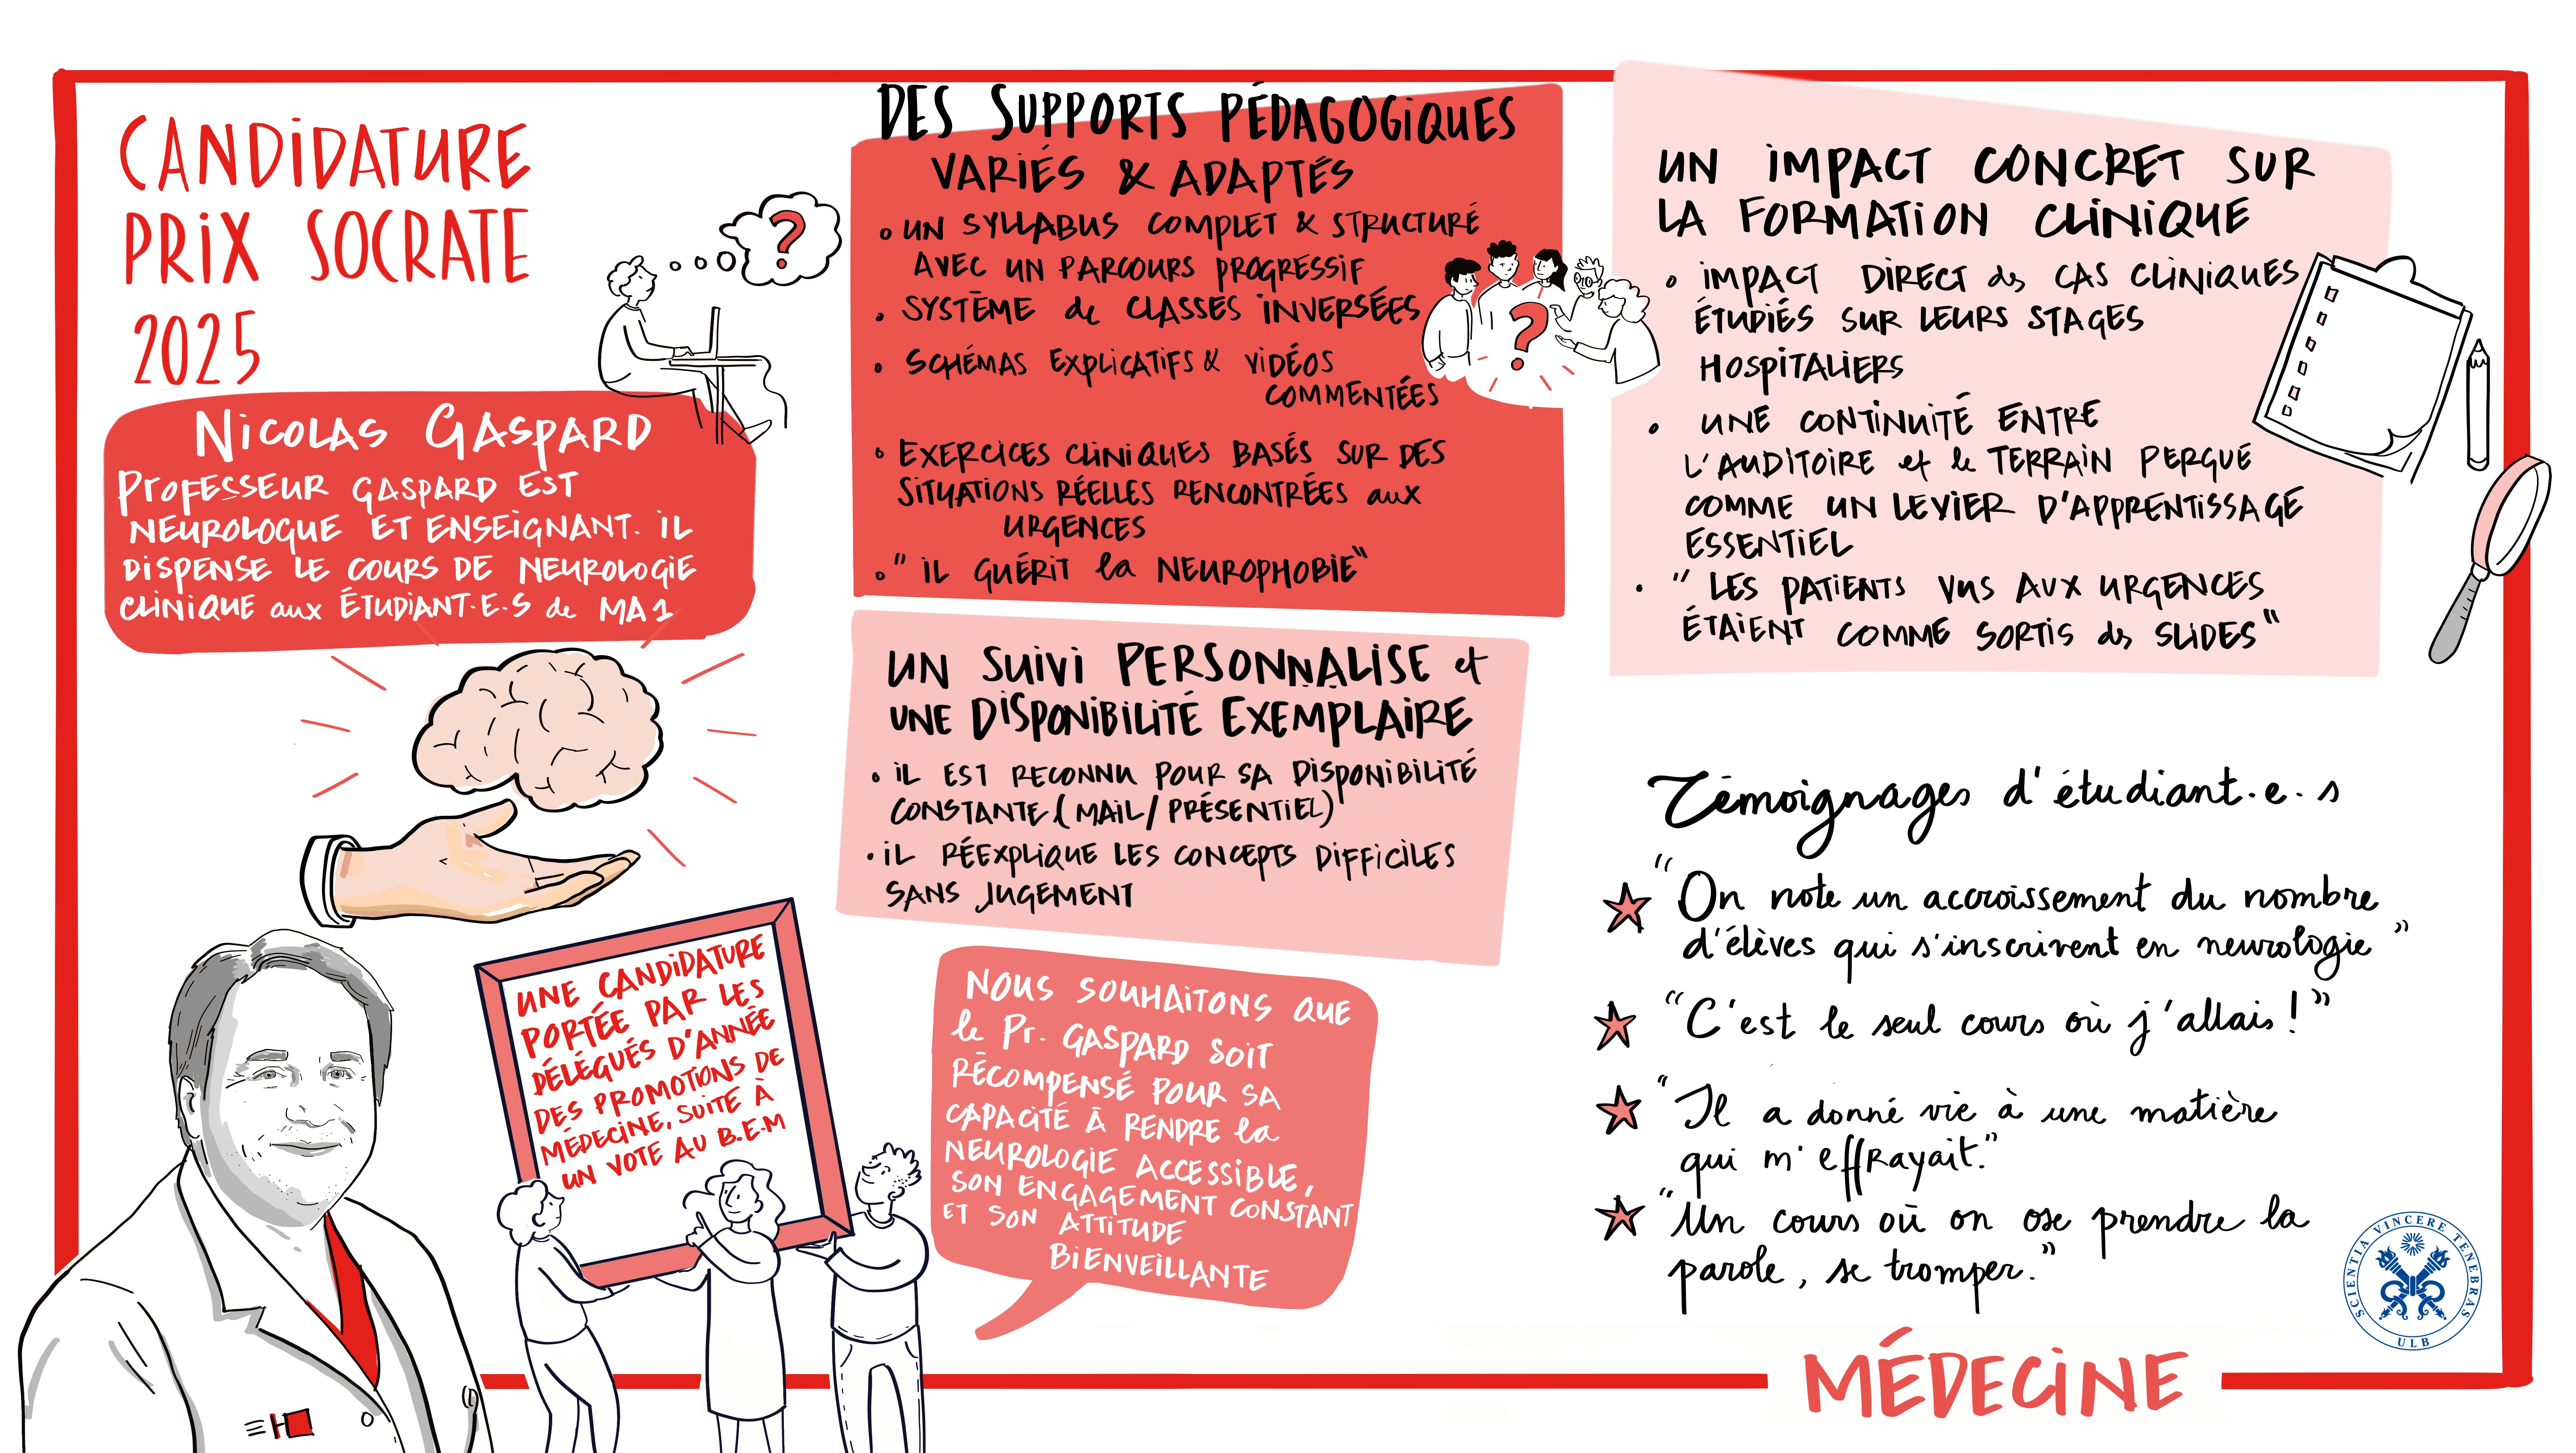 CANDIDATURE
PRIX SOCRATE
2025
NICOLAS GASPARD
PROFESSEUR GASPARD EST
NEUROLOGUE ET ENSEIGNANT. IL
DISPENSE LE COURS DE NEUROLOGIE
CLINIQUE aux ÉTUDIANT·E·S de MA1
UNE CANDIDATURE
PORTÉE PAR LES
DÉLÉGUÉS D'ANNÉE
DES PROMOTIONS DE
MÉDECINE, SUITE À
UN VOTE AU B.E.M
DES SUPPORTS PÉDAGOGIQUES
VARIÉS & ADAPTÉS
• UN SYLLABUS COMPLET & STRUCTURÉ
AVEC UN PARCOURS PROGRESSIF
• SYSTÈME de CLASSES INVERSÉES
• SCHÉMAS EXPLICATIFS & VIDÉOS
COMMENTÉES
• EXERCICES CLINIQUES BASÉS SUR DES
SITUATIONS RÉELLES RENCONTRÉES aux
URGENCES
• "IL GUÉRIT la NEUROPHOBIE"
?
?
UN SUIVI PERSONNALISE et
UNE DISPONIBILITÉ EXEMPLAIRE
• IL EST RECONNU POUR SA DISPONIBILITÉ
CONSTANTE (MAIL/PRÉSENTIEL)
• IL RÉEXPLIQUE LES CONCEPTS DIFFICILES
SANS JUGEMENT
NOUS SOUHAITONS QUE
le Pr. GASPARD SOIT
RÉCOMPENSÉ POUR SA
CAPACITÉ À RENDRE la
NEUROLOGIE ACCESSIBLE,
SON ENGAGEMENT CONSTANT
ET SON ATTITUDE
BIENVEILLANTE
UN IMPACT CONCRET SUR
LA FORMATION CLINIQUE
• IMPACT DIRECT des CAS CLINIQUES
ÉTUDIÉS SUR LEURS STAGES
HOSPITALIERS
• UNE CONTINUITÉ ENTRE
L'AUDITOIRE et le TERRAIN PERÇUE
COMME UN LEVIER D'APPRENTISSAGE
ESSENTIEL
• "LES PATIENTS VUS AUX URGENCES
ÉTAIENT COMME SORTIS des SLIDES"
Témoignages d'étudiant·e·s
"On note un accroissement du nombre
d'élèves qui s'inscrivent en neurologie"
"C'est le seul cours où j'allais !"
"Il a donné vie à une matière
qui m'effrayait."
"Un cours où on ose prendre la
parole, se tromper."
SCIENTIA VINCERE TENEBRAS
ULB
MÉDECINE